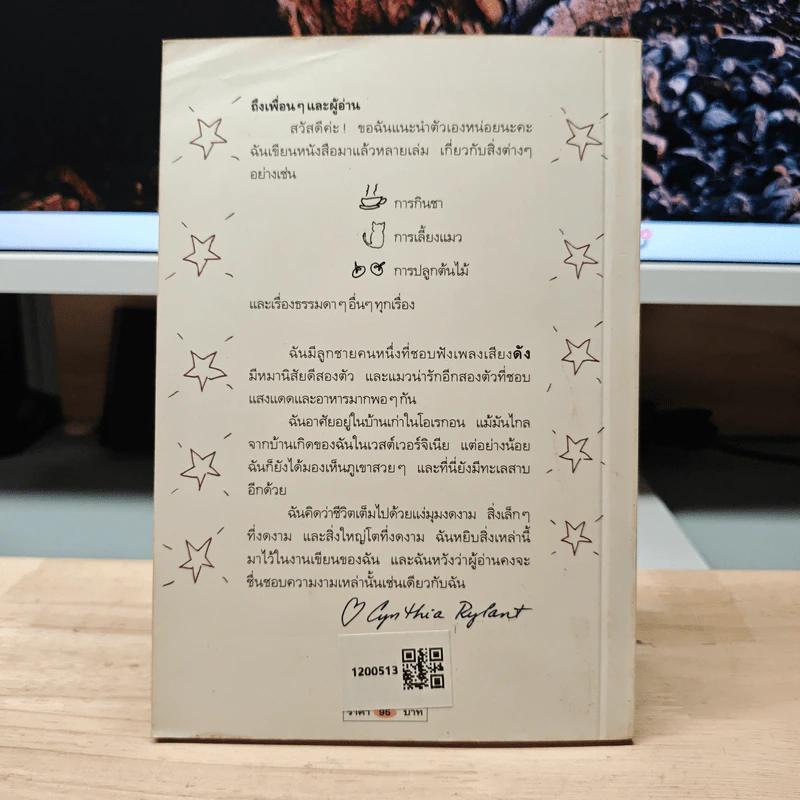 ถึงเพื่อนๆ และผู้อ่าน
สวัสดีค่ะ! ขอฉันแนะนำตัวเองหน่อยนะคะ
ฉันเขียนหนังสือมาแล้วหลายเล่ม เกี่ยวกับสิ่งต่างๆ
อย่างเช่น
การกินชา
การเลี้ยงแมว
การปลูกต้นไม้
และเรื่องธรรมดาๆ อื่นๆ ทุกเรื่อง
ฉันมีลูกชายคนหนึ่งที่ชอบฟังเพลงเสียงดัง
มีหมานิสัยดีสองตัว และแมวน่ารักอีกสองตัวที่ชอบ
แสงแดดและอาหารมากพอๆ กัน
ฉันอาศัยอยู่ในบ้านเก่าในโอเรกอน แม้มันไกล
จากบ้านเกิดของฉันในเวสต์เวอร์จิเนีย แต่อย่างน้อย
ฉันก็ยังได้มองเห็นภูเขาสวยๆ และที่นี่ยังมีทะเลสาบ
อีกด้วย
ฉันคิดว่าชีวิตเต็มไปด้วยแง่มุมงดงาม สิ่งเล็กๆ
ที่งดงาม และสิ่งใหญ่โตที่งดงาม ฉันหยิบสิ่งเหล่านี้
มาไว้ในงานเขียนของฉัน และฉันหวังว่าผู้อ่านคงจะ
ชื่นชอบความงามเหล่านั้นเช่นเดียวกับฉัน
Cynthia Rylant
1200513
ราคา 95 บาท